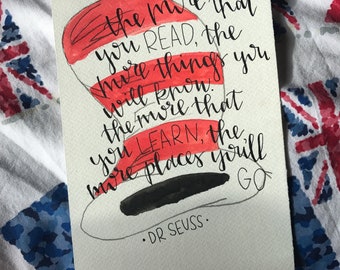 the more that
you READ, the
more things you
will know.
the more that
you LEARN, the
more places you'll
GO
· DR SEUSS ·